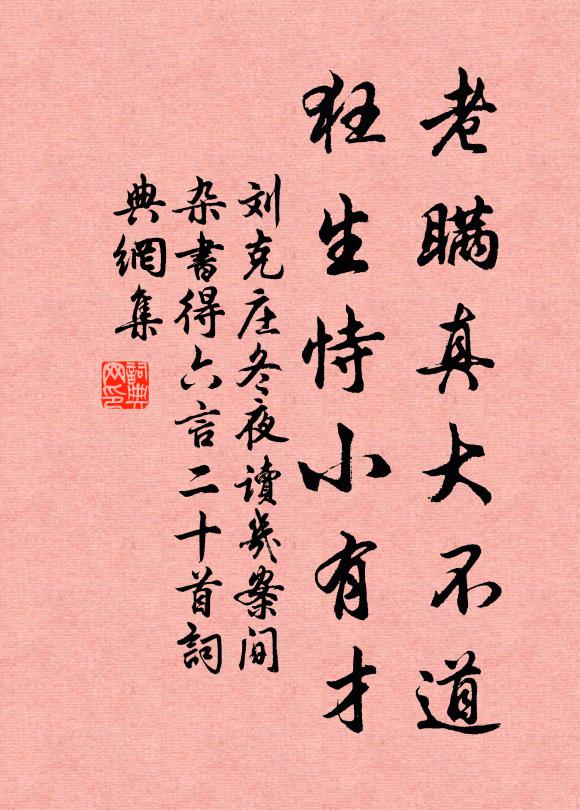 老瞒真大不道
狂生恃小有才
刘克庄冬夜讀幾案间
杂書得六言二十首詞
典網集
詞典网印